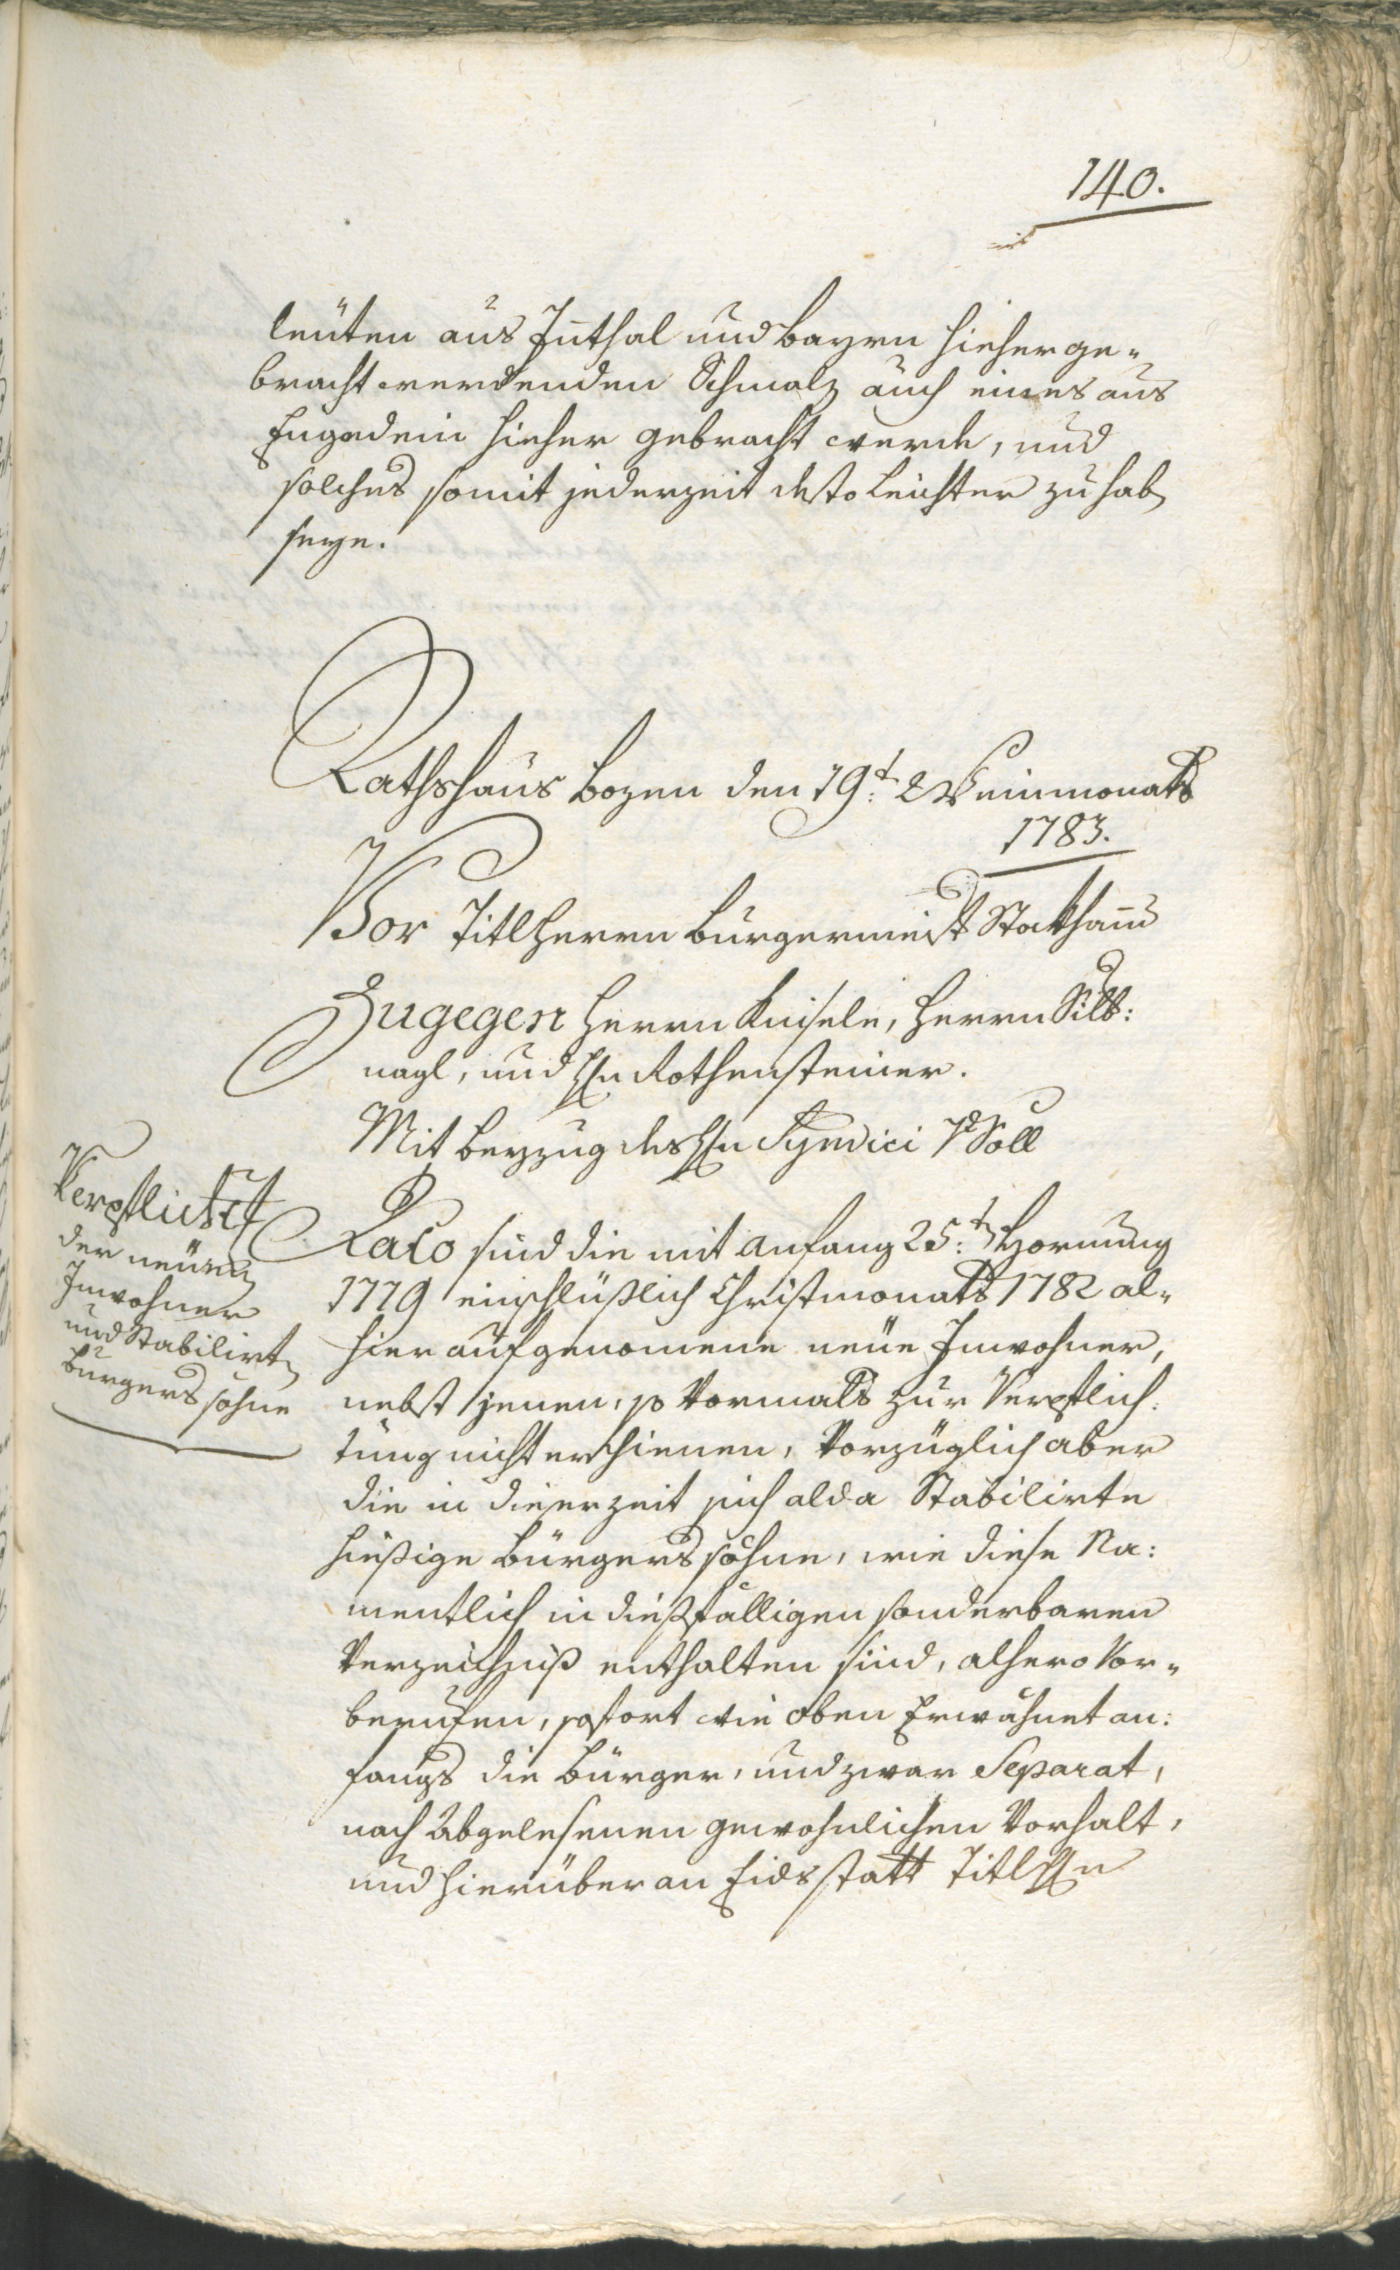 140.
leüten aus Iñthal und Bayrn hieher ge„
bracht werdenden Schmalz auch eines aus
Engedein hieher gebracht werde, und
solches somit jederzeit desto leichter zu hab
seye.
Rathshaus Bozen den 19.t Weinmonats
1783.
Vor Titl Herrn Bürgermeist
Zugegen Herrn Kniseln, Herrn Silb:
nagl, und Hn Rothensteiner.
Mit Beyzug des Hn Syndici
Verpflicht
der neüen
Inwohner
und Stabilirt
Bürgers söhne
Raio sind die mit Anfang 25.t Hornung
1779 einschlüßlich Christmonats 1782 al„
hier aufgenomene neüe Inwohner,
nebst jenen, so Vormals zur Verpflich:
tung nicht erschienen, Vorzüglich aber
die in dieser zeit sich alda Stabilirte
hießige Bürgers söhne, wie diese Na:
mentlich in dießfälligen sonderbaren
Verzeichniß enthalten sind, alhero Vor„
berufen, sofort wie oben Erwähnet an:
fangs die Bürger, und zwar Separat,
nach Abgelesenen gewohnlichen Vorhalt,
und hierüber an Eids statt Titl Hn